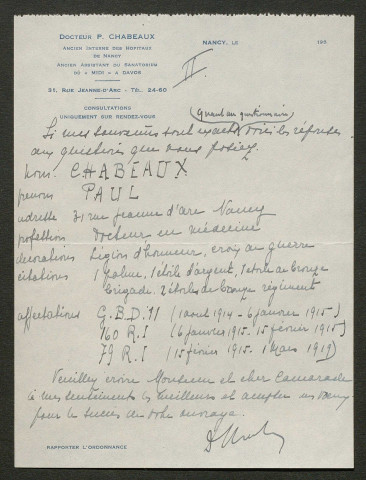 DOCTEUR P. CHABEAUX
ANCIEN INTERNE DES HOPITAUX
DE NANCY
ANCIEN ASSISTANT DU SANATORIUM
DU « MIDI » A DAVOS
31, RUE JEANNE-D'ARC - TÉL. 24-60
CONSULTATIONS
UNIQUEMENT SUR RENDEZ-VOUS
NANCY, LE 195
II
(Quant au questionnaire)
Si mes souvenirs sont exacts voici les réponses
aux questions que vous posiez.
Nom CHABEAUX
prenoms PAUL
adresse 31 rue jeanne d'arc Nancy
profession Docteur en médecine
decorations Légion d'honneur, croix de guerre
citations 1 palme, 1 étoile d'argent, 1 étoile de bronze
brigade. 2 étoiles de bronze régiment
affectations G.B.D. 11 (1 aout 1914 - 6 janvier 1915)
160 R.I (6 janvier 1915. 15 février 1915)
79 R.I (15 février 1915. 1 Mars 1919)
Veuillez croire Monsieur et cher Camarade
à mes sentiments les meilleurs et accepter mes vœux
pour le succès de votre ouvrage.
RAPPORTER L'ORDONNANCE